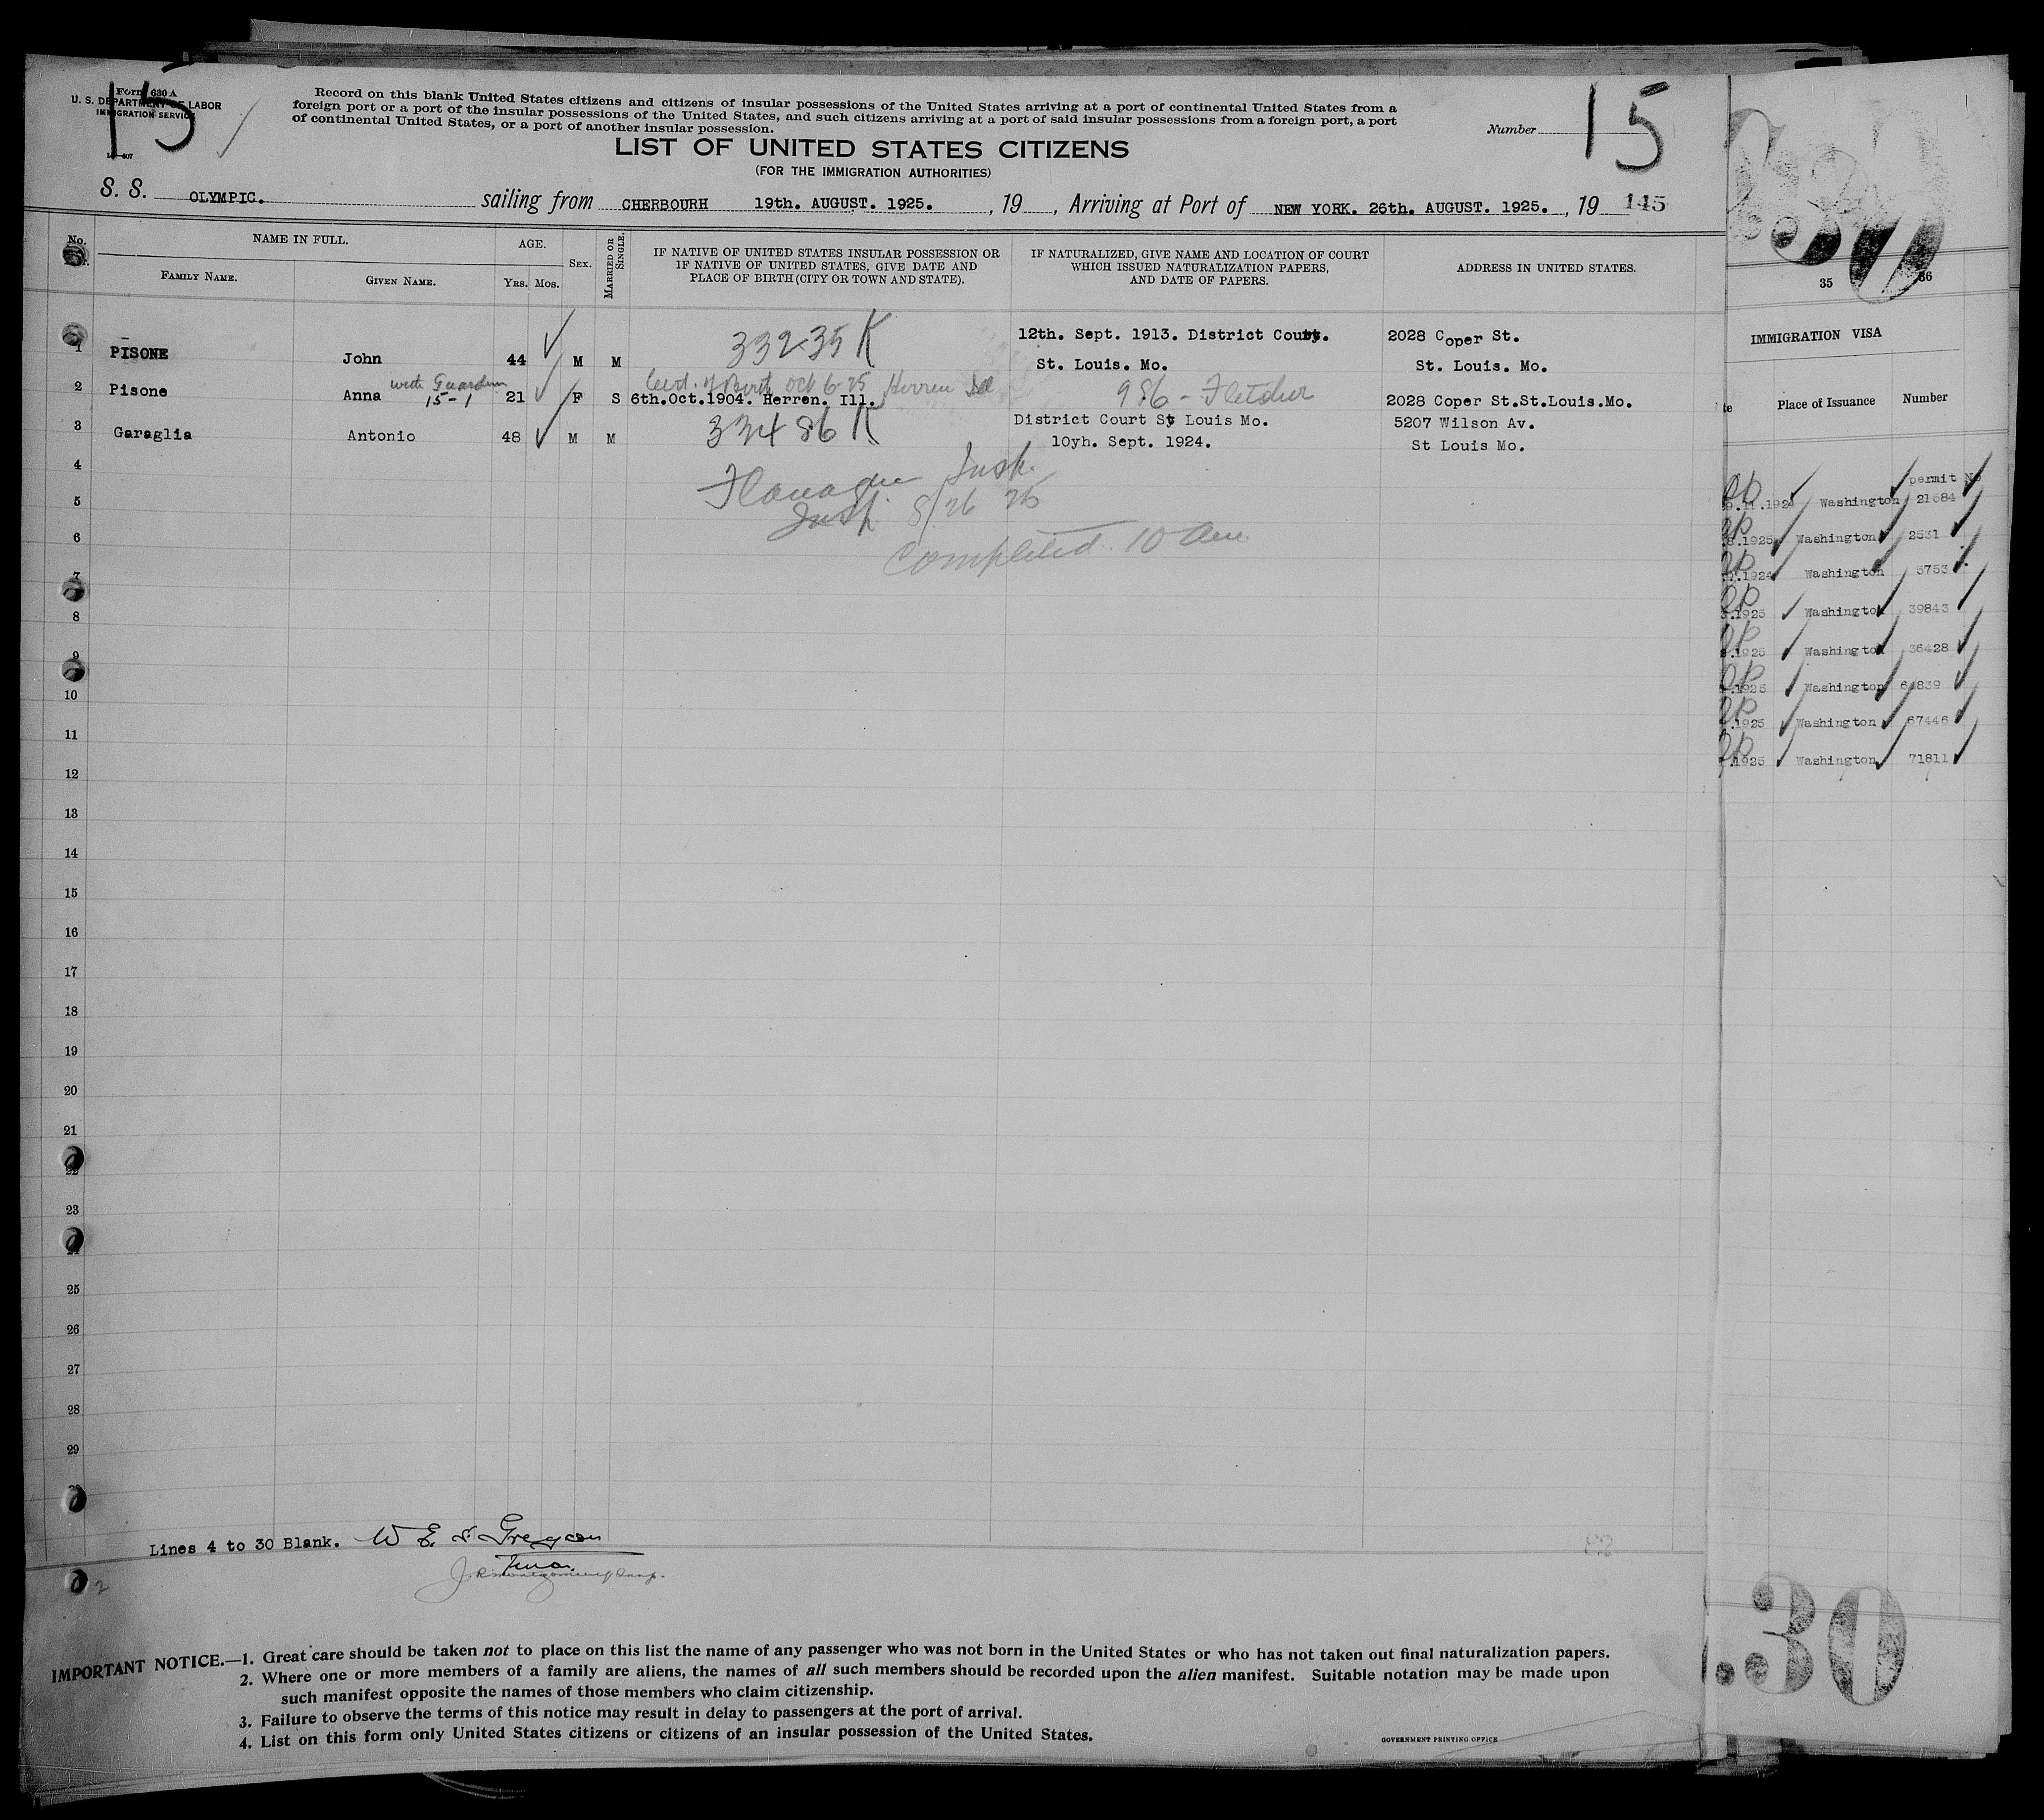 15
Form 630 A
U. S. DEPARTMENT OF LABOR
IMMIGRATION SERVICE
Record on this blank United States citizens and citizens of insular possessions of the United States arriving at a port of continental United States from a
foreign port or a port of the insular possessions of the United States, and such citizens arriving at a port of said insular possessions from a foreign port, a port
of continental United States, or a port of another insular possession.
Number 15
LIST OF UNITED STATES CITIZENS
(FOR THE IMMIGRATION AUTHORITIES)
S. S. OLYMPIC. sailing from CHERBOURH 19th. AUGUST. 1925. , 19 , Arriving at Port of NEW YORK. 26th. AUGUST. 1925. , 19 145
No.
NAME IN FULL.
FAMILY NAME.
GIVEN NAME.
AGE.
YRS. MOS.
SEX.
MARRIED OR SINGLE.
IF NATIVE OF UNITED STATES INSULAR POSSESSION OR
IF NATIVE OF UNITED STATES, GIVE DATE AND
PLACE OF BIRTH (CITY OR TOWN AND STATE).
IF NATURALIZED, GIVE NAME AND LOCATION OF COURT
WHICH ISSUED NATURALIZATION PAPERS,
AND DATE OF PAPERS.
ADDRESS IN UNITED STATES.
12th. Sept. 1913. District Court. 2028 Coper St.
1 PISONE John 44 M M 33235 K St. Louis. Mo. St. Louis. Mo.
with Guardian Cert. of Birth Oct 6-25 Herren Ill 986 - Fletcher
2 Pisone Anna 15-1 21 F S 6th.Oct.1904. Herren. Ill. 2028 Coper St.St.Louis.Mo.
District Court St Louis Mo. 5207 Wilson Av.
3 Garaglia Antonio 48 M M 33486 K 10yh. Sept. 1924. St Louis Mo.
4
Flanagan Insp.
5
Insp. 8/26 25
6
Completed. 10 am
7
8
9
10
11
12
13
14
15
16
17
18
19
20
21
22
23
24
25
26
27
28
29
30
Lines 4 to 30 Blank.
J R Montgomery Insp.
2
IMPORTANT NOTICE.—1. Great care should be taken not to place on this list the name of any passenger who was not born in the United States or who has not taken out final naturalization papers.
2. Where one or more members of a family are aliens, the names of all such members should be recorded upon the alien manifest. Suitable notation may be made upon
such manifest opposite the names of those members who claim citizenship.
3. Failure to observe the terms of this notice may result in delay to passengers at the port of arrival.
4. List on this form only United States citizens or citizens of an insular possession of the United States.
GOVERNMENT PRINTING OFFICE
35 36
IMMIGRATION VISA
Place of Issuance Number
permit No
1924 Washington 21684
.1925 Washington 2531
.1924 Washington 5753
.1925 Washington 39843
.1925 Washington 36428
.1925 Washington 64839
.1925 Washington 67446
.1925 Washington 71811
30